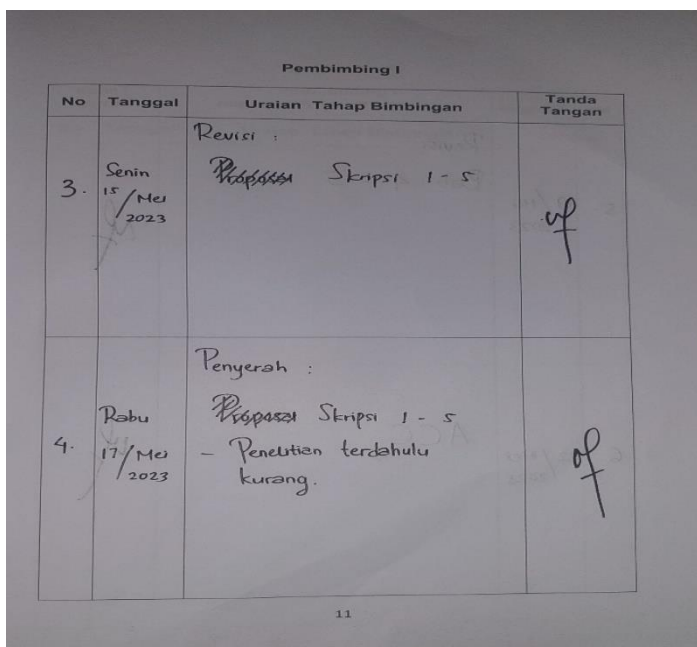 Pembimbing I
No Tanggal Uraian Tahap Bimbingan Tanda
Tangan
3. Senin
15/Mei
2023
Revisi :
Skripsi 1 - 5
4. Rabu
17/Mei
2023
Penyerah :
Skripsi 1 - 5
- Penelitian terdahulu
kurang.
11